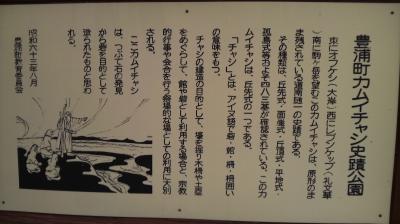 豊浦町カムイチャシ史蹟公園
東にオプケシ(大岸)西にレブンケップ(礼文華
)南に駒ヶ岳を望むこのカムイチャシは、原形のま
ま残されている道南随一の史蹟である。
その種類は、丘先式・面崖式・丘頂式・平地式・
孤島式等およそ四八三基が確認されている。このカ
ムイチャシは、丘先式の一つである。
「チャシ」とは、アイヌ語で砦・館・柵・柵囲い
の意味をもつ。
チャシの構造の目的として、壕を掘り木柵や土塁
をめぐらして、館や砦として利用する場合と、宗教
的行事や会合を行う祭場的な場としての利用に大別
される。
ここカムイチャシ
は、つぶて石の発見
から砦を目的として
造られたものと思わ
れる。
昭和六十三年八月
豊浦町教育委員会